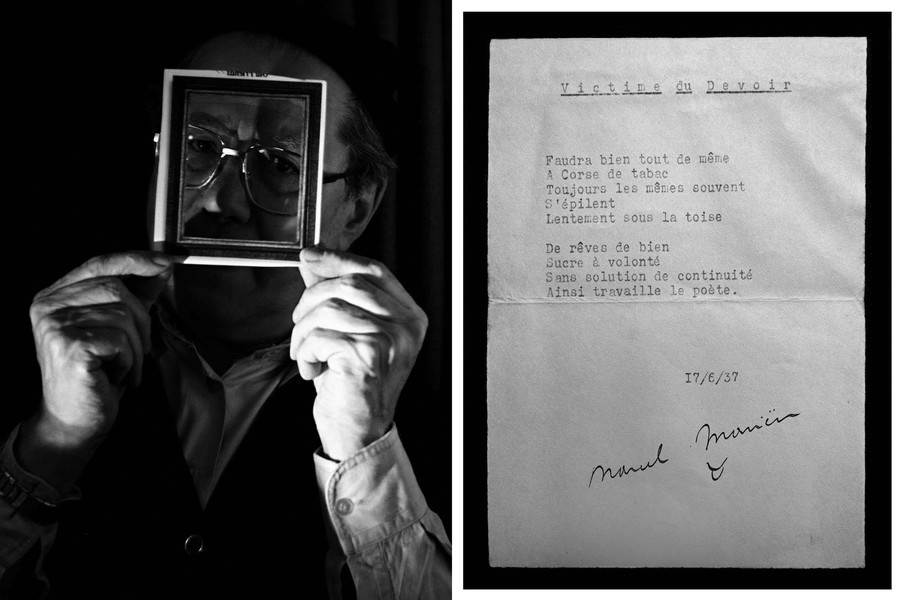 Victime du Devoir
Faudra bien tout de même
A Corse de tabac
Toujours les mêmes souvent
S'épilent
Lentement sous la toise
De rêves de bien
Sucre à volonté
Sans solution de continuité
Ainsi travaille le poète.
17/6/37
Marcel Mariën